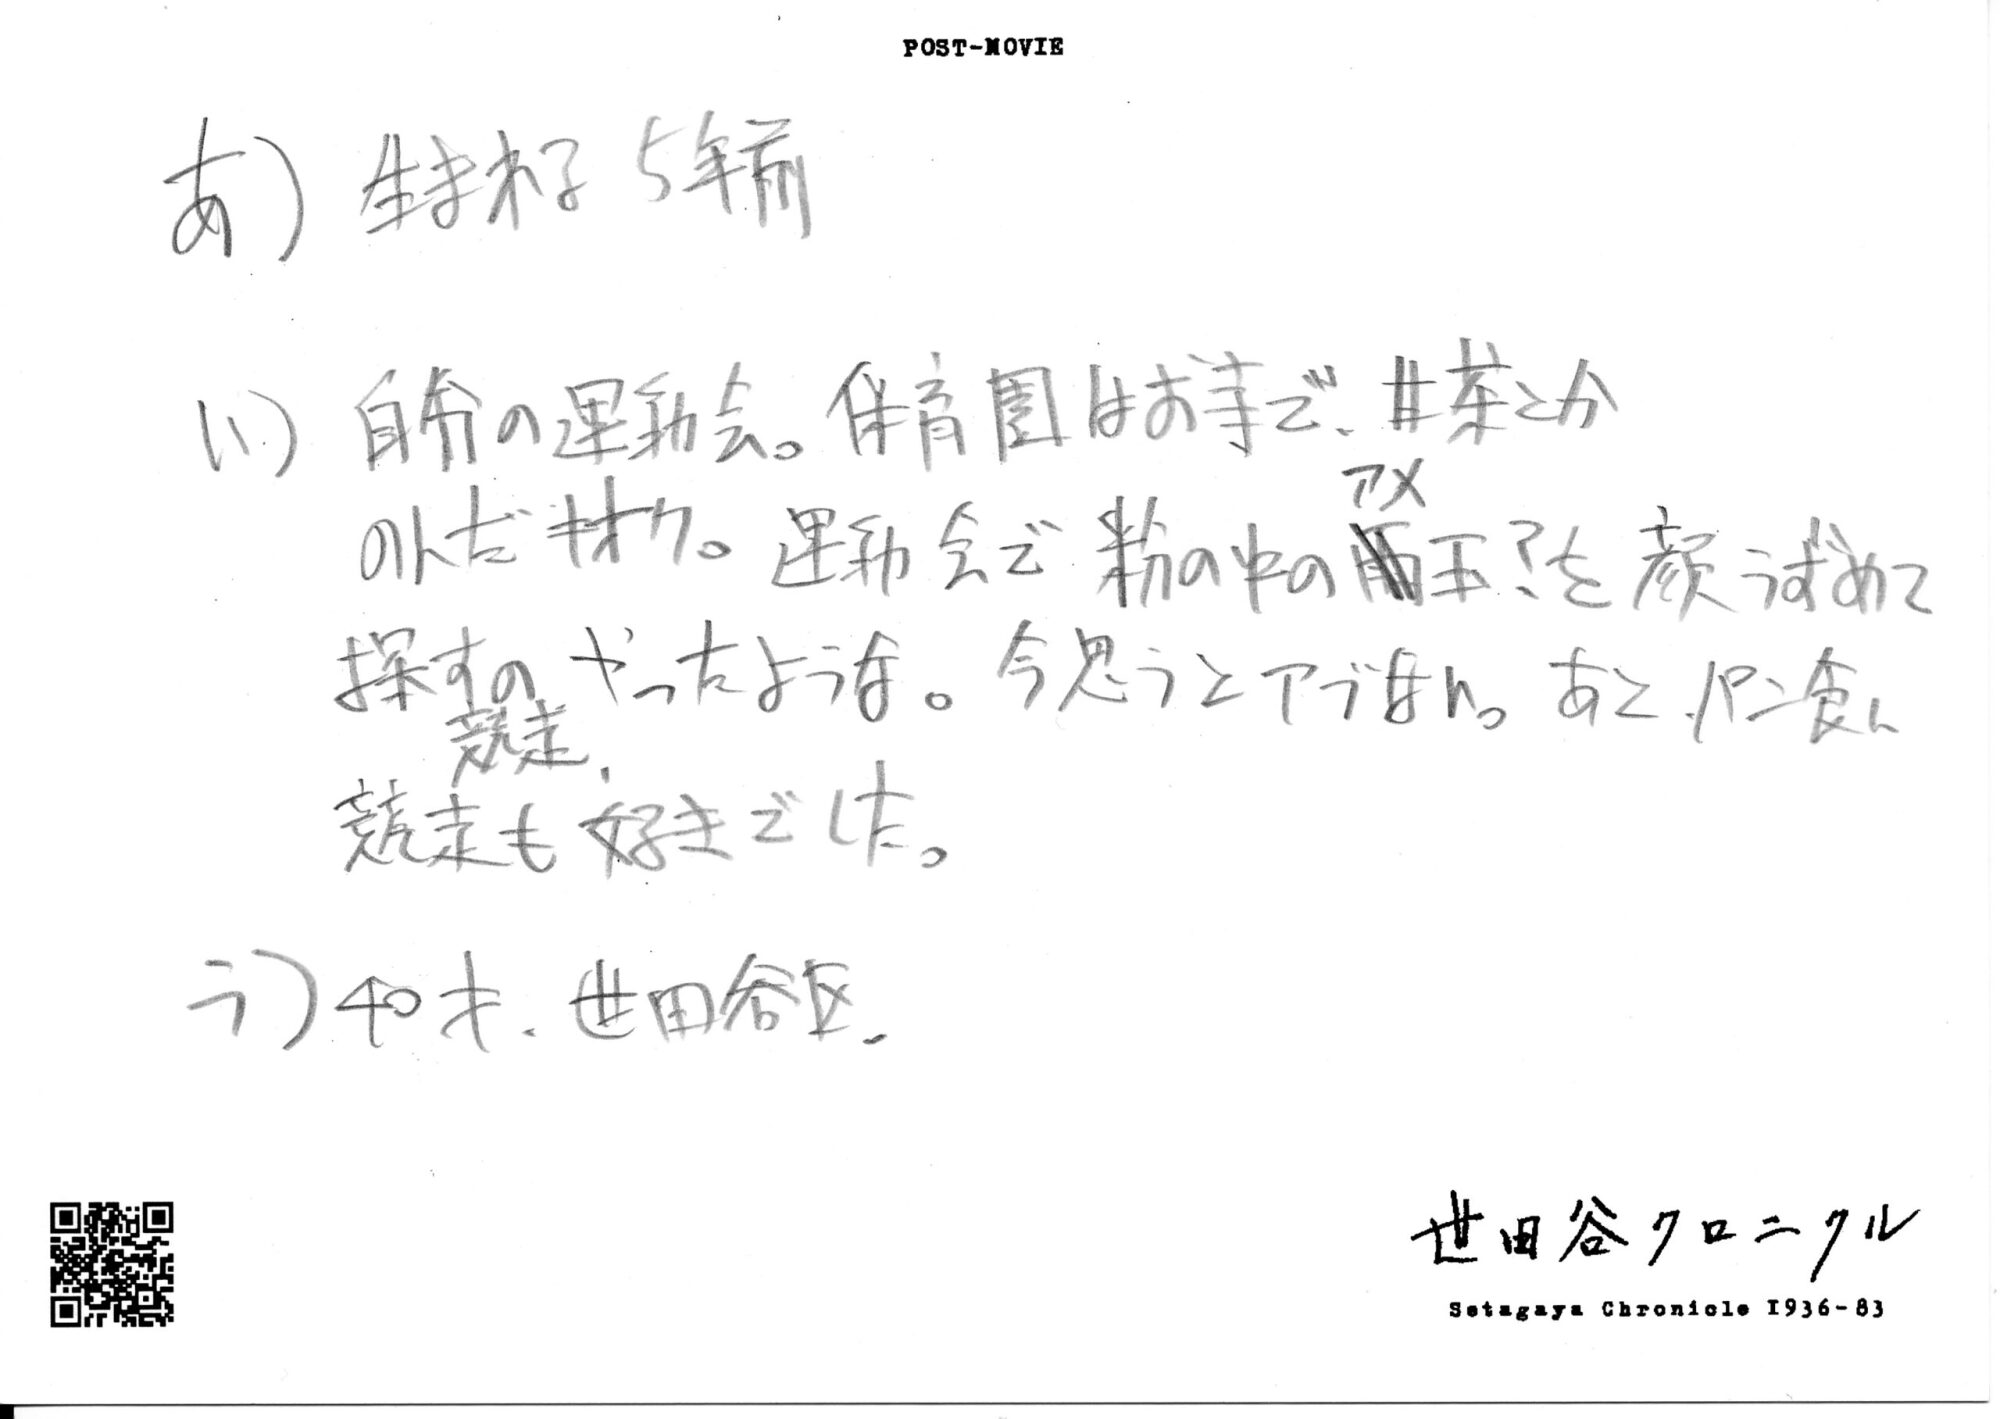 POST-MOVIE
あ) 生まれる 5年前
い) 自分の運動会。保育園はお寺で、甘茶とか
のんだキオク。運動会で粉の中のアメ玉?を顔うずめて
探すの競走、やったような。今思うとアブなん。あと、パン食い
競走も好きでした。
う) 40才、世田谷区。
世田谷クロニクル
Setagaya Chronicle 1936-83